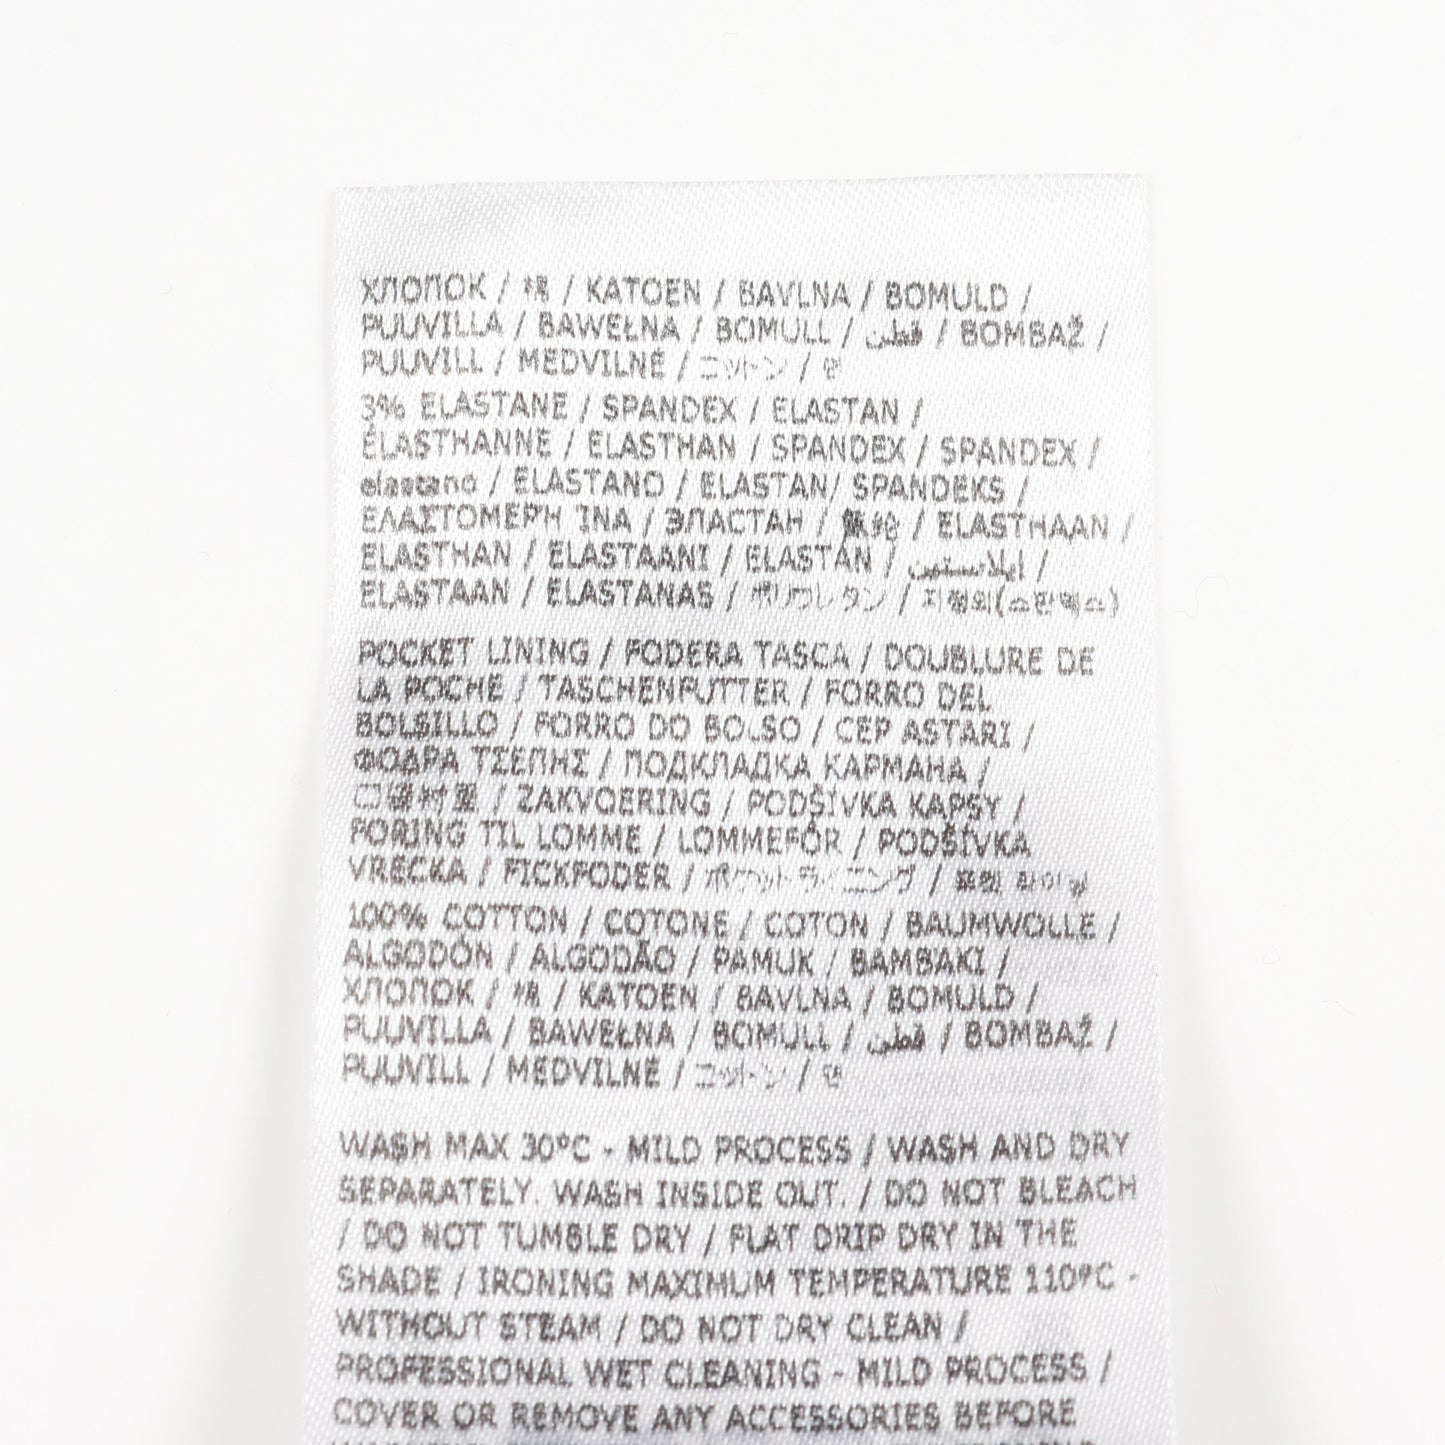 ХЛОПОК / 棉 / KATOEN / BAVLNA / BOMULD /
PUUVILLA / BAWEŁNA / BOMULL / قطن / BOMBAŽ /
PUUVILL / MEDVILNĖ / コットン / 면
3% ELASTANE / SPANDEX / ELASTAN /
ÉLASTHANNE / ELASTHAN / SPANDEX / SPANDEX /
elastano / ELASTANO / ELASTAN/ SPANDEKS /
ΕΛΑΣΤΟΜΕΡΗ ΙΝΑ / ЭЛАСТАН / 氨纶 / ELASTHAAN /
ELASTHAN / ELASTAANI / ELASTAN / إيلاستين /
ELASTAAN / ELASTANAS / ポリウレタン /
POCKET LINING / FODERA TASCA / DOUBLURE DE
LA POCHE / TASCHENFUTTER / FORRO DEL
BOLSILLO / FORRO DO BOLSO / CEP ASTARI /
ΦΟΔΡΑ ΤΣΕΠΗΣ / ПОДКЛАДКА КАРМАНА /
/ ZAKVOERING / PODŠÍVKA KAPSY /
FORING TIL LOMME / LOMMEFÔR / PODŠÍVKA
VRECKA / FICKFODER / ポケットライニング /
100% COTTON / COTONE / COTON / BAUMWOLLE /
ALGODÓN / ALGODÃO / PAMUK / BAMBAKI /
ХЛОПОК / 棉 / KATOEN / BAVLNA / BOMULD /
PUUVILLA / BAWEŁNA / BOMULL / قطن / BOMBAŽ /
PUUVILL / MEDVILNĖ / コットン / 면
WASH MAX 30°C - MILD PROCESS / WASH AND DRY
SEPARATELY. WASH INSIDE OUT. / DO NOT BLEACH
/ DO NOT TUMBLE DRY / FLAT DRIP DRY IN THE
SHADE / IRONING MAXIMUM TEMPERATURE 110°C -
WITHOUT STEAM / DO NOT DRY CLEAN /
PROFESSIONAL WET CLEANING - MILD PROCESS /
COVER OR REMOVE ANY ACCESSORIES BEFORE